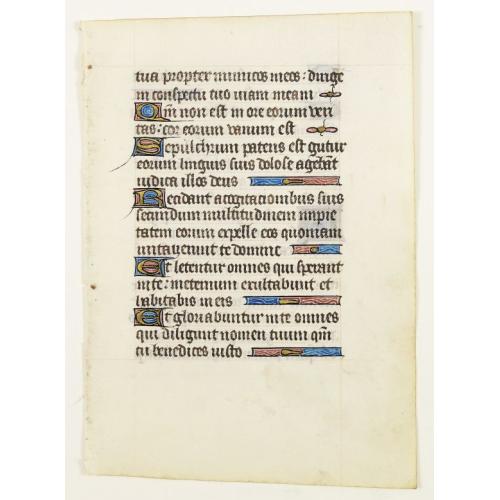 tua propter inimicos meos: dirige
in conspectu tuo viam meam
Qm̄ non est in ore eorum veri
tas: cor eorum vanum est
Sepulchrum patens est gutur
eorum linguis suis dolose agebāt
iudica illos deus
Decidant a cogitacionibus suis
secundum multitudinem impie
tatem eorum expelle eos quoniam
irritaverunt te domine
Et letentur omnes qui sperant
in te: in eternum exultabunt et
habitabis in eis
Et gloriabuntur in te omnes
qui diligunt nomen tuum qm̄
tu benedices iusto